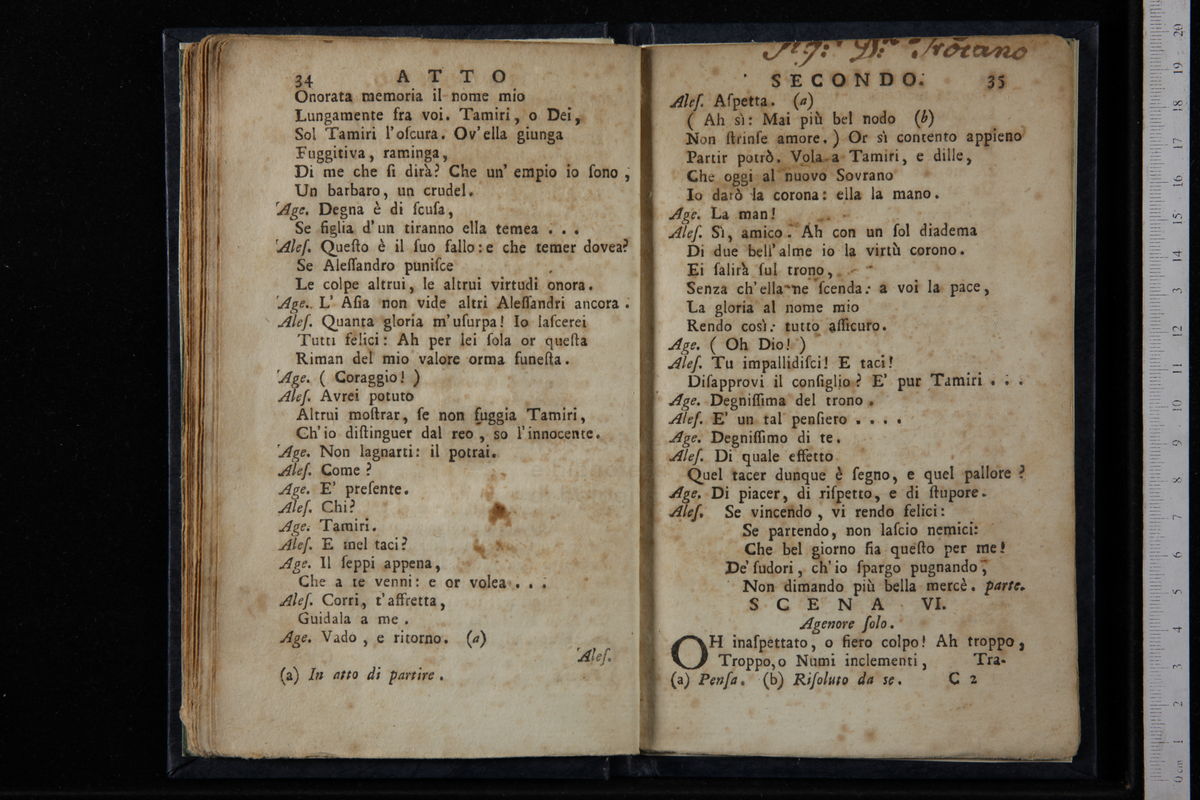 34 ATTO
Onorata memoria il nome mio
Lungamente fra voi. Tamiri, o Dei,
Sol Tamiri l'oſcura. Ov'ella giunga
Fuggitiva, raminga,
Di me che ſi dirà? Che un' empio io ſono,
Un barbaro, un crudel.
Age. Degna è di ſcuſa,
Se figlia d'un tiranno ella temea . . .
Aleſ. Queſto è il ſuo fallo: e che temer dovea?
Se Aleſſandro puniſce
Le colpe altrui, le altrui virtudi onora.
Age. L' Aſia non vide altri Aleſſandri ancora.
Aleſ. Quanta gloria m'uſurpa! Io laſcerei
Tutti felici: Ah per lei ſola or queſta
Riman del mio valore orma funeſta.
Age. ( Coraggio! )
Aleſ. Avrei potuto
Altrui moſtrar, ſe non fuggia Tamiri,
Ch'io diſtinguer dal reo, so l'innocente.
Age. Non lagnarti: il potrai.
Aleſ. Come?
Age. E' preſente.
Aleſ. Chi?
Age. Tamiri.
Aleſ. E mel taci?
Age. Il ſeppi appena,
Che a te venni: e or volea . . .
Aleſ. Corri, t'affretta,
Guidala a me.
Age. Vado, e ritorno. (a)
Aleſ.
(a) In atto di partire.
Troiano
SECONDO. 35
Aleſ. Aſpetta. (a)
( Ah sì: Mai più bel nodo (b)
Non ſtrinſe amore. ) Or sì contento appieno
Partir potrò. Vola a Tamiri, e dille,
Che oggi al nuovo Sovrano
Io darò la corona: ella la mano.
Age. La man!
Aleſ. Sì, amico. Ah con un ſol diadema
Di due bell'alme io la virtù corono.
Ei ſalirà ſul trono,
Senza ch'ella ne ſcenda: a voi la pace,
La gloria al nome mio
Rendo così: tutto aſſicuro.
Age. ( Oh Dio! )
Aleſ. Tu impallidiſci! E taci!
Diſapprovi il conſiglio? E' pur Tamiri . . .
Age. Degniſſima del trono.
Aleſ. E' un tal penſiero . . . .
Age. Degniſſimo di te.
Aleſ. Di quale effetto
Quel tacer dunque è ſegno, e quel pallore?
Age. Di piacer, di riſpetto, e di ſtupore.
Aleſ. Se vincendo, vi rendo felici:
Se partendo, non laſcio nemici:
Che bel giorno fia queſto per me!
De' ſudori, ch'io ſpargo pugnando,
Non dimando più bella mercè. parte.
SCENA VI.
Agenore ſolo.
OH inaſpettato, o fiero colpo! Ah troppo,
Troppo, o Numi inclementi, Tra-
(a) Penſa. (b) Riſoluto da se. C 2